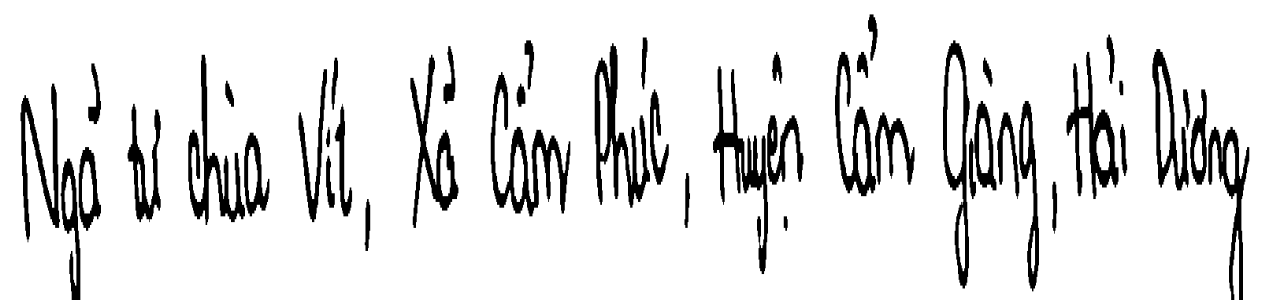 Ngã tư chùa Vít, Xã Cẩm Phúc, Huyện Cẩm Giàng, Hải Dương